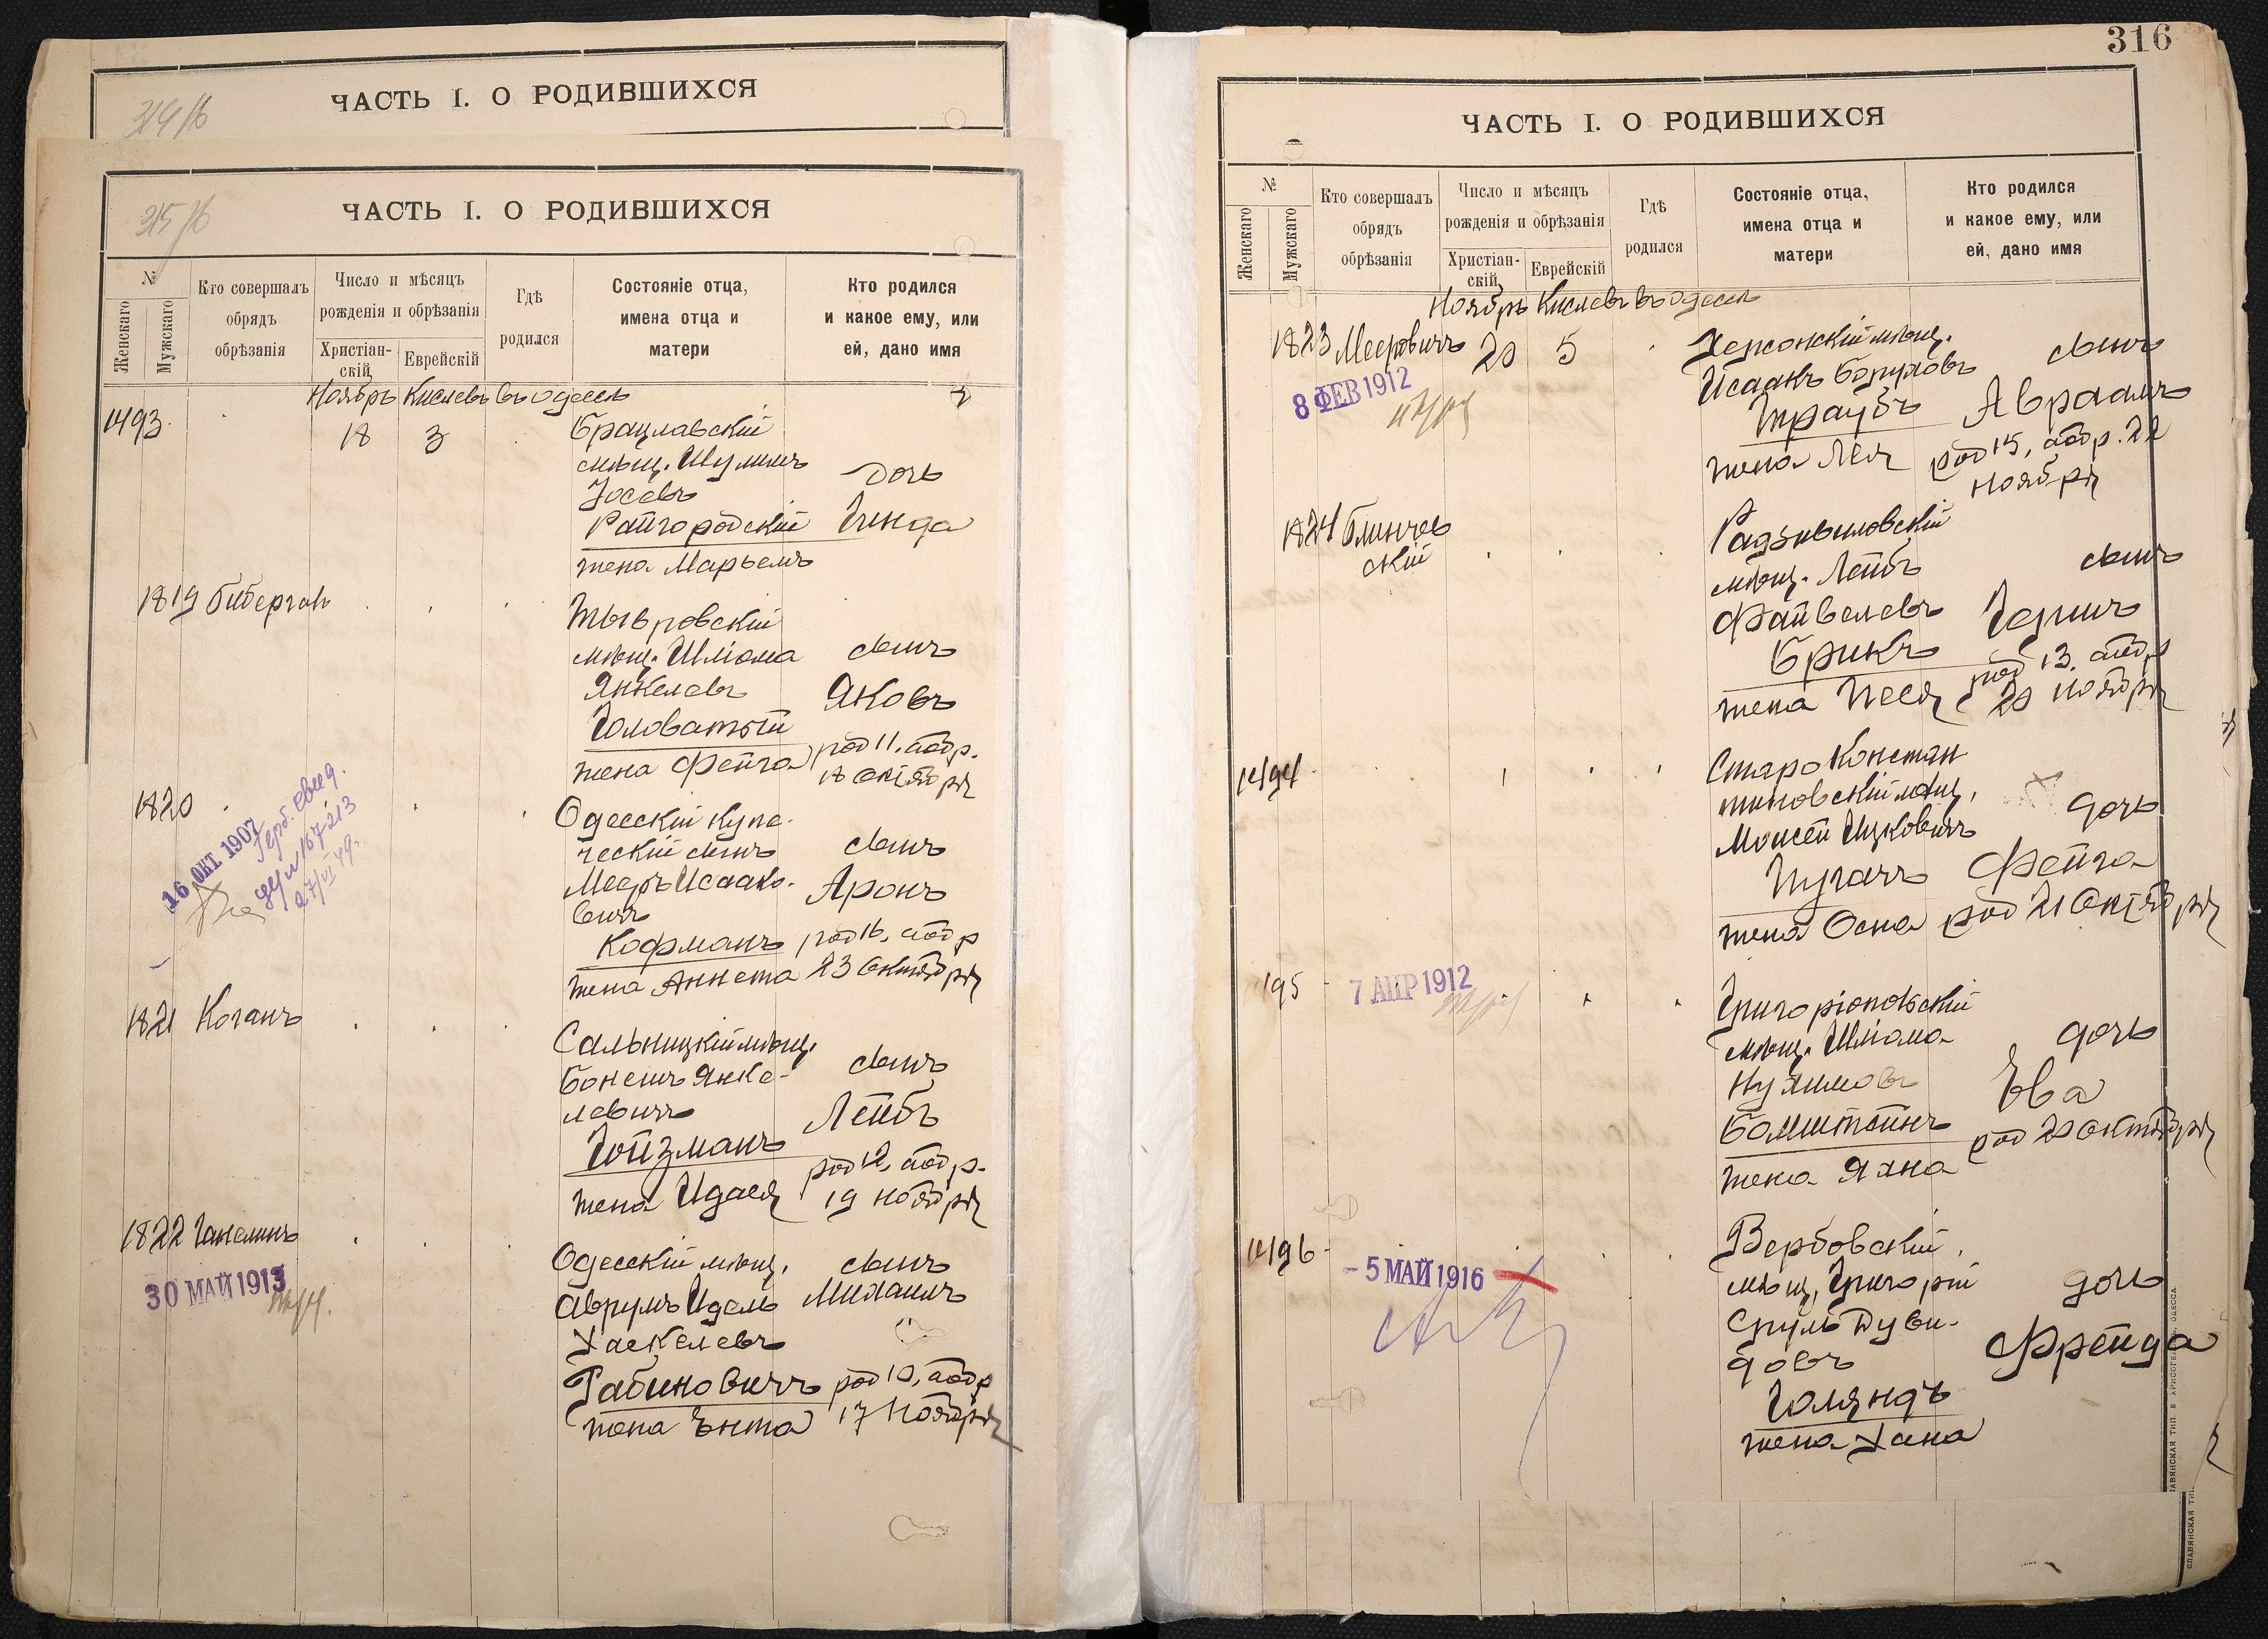 ЧАСТЬ I. О РОДИВШИХСЯ
ЧАСТЬ I. О РОДИВШИХСЯ
№
Женскаго
Мужскаго
Кто совершалъ обрядъ обрѣзанія
Число и мѣсяцъ рожденія и обрѣзанія
Христіан-
скій
Еврейскій
Гдѣ родился
Состояніе отца, имена отца и матери
Кто родился и какое ему, или ей, дано имя
Ноябрь Кислевъ въ Одессѣ
1493
18 3
Брацлавскій
мѣщ. Шулимъ
Іосевъ
Райгородскій
жена Марьемъ
дочь
Гинда
1819 Биберган
Тывровскій
мѣщ. Шліома
Янкелевъ
Головатый
жена Фейга
сынъ
Яковъ
род 11, обр.
18 октября
1820
16 ОКТ. 1907
27/VI 49.
Одесскій купе-
ческій сынъ
Мееръ Исаако-
вичъ
Кофманъ
жена Аннета
сынъ
Аронъ
род 16, обр
23 октября
1821 Коганъ
Сальницкій мѣщ.
Бонемъ Янке-
левичъ
Гойзманъ
жена Идася
сынъ
Лейбъ
род 12, обр.
19 ноября
1822 Ганелинъ
30 МАЙ 1913
Одесскій мѣщ.
Аврумъ Идель
Хаскелевъ
Рабиновичъ
жена Энта
сынъ
Михаилъ
род 10, обр
17 ноября
316
ЧАСТЬ I. О РОДИВШИХСЯ
№
Женскаго
Мужскаго
Кто совершалъ обрядъ обрѣзанія
Число и мѣсяцъ рожденія и обрѣзанія
Христіан-
скій
Еврейскій
Гдѣ родился
Состояніе отца, имена отца и матери
Кто родился и какое ему, или ей, дано имя
Ноябрь Кислевъ въ Одессѣ
1823 Мееровичъ 20 5
8 ФЕВ 1912
Херсонскій мѣщ.
Исаакъ Боруховъ
Траубъ
жена Лея
сынъ
Авраамъ
род 15, обр. 22
ноября
1824 Блинчев
скій
Радзивиловскій
мѣщ. Лейбъ
Файвелевъ
Брикъ
жена Песя
сынъ
Герш
род 13, обр
20 ноября
1494
Староконстан
тиновскій мѣщ.
Моисей Ицковичъ
Пугачъ
жена Осна
дочь
Фейга
род 21 октября
195
7 АПР 1912
Григоріопольскій
мѣщ. Шліома-
Нухимовъ
Бомштейнъ
жена Яхна
дочь
Ева
род 20 октября
1496
- 5 МАЙ 1916
Вербовскій
мѣщ. Григорій
Сруль Дуви-
довъ
Голяндъ
жена Хана
дочь
Фрейда